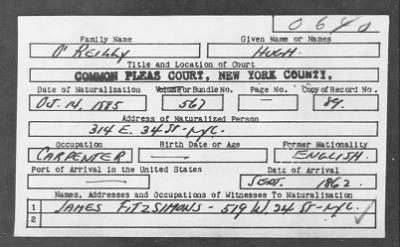 O640
Family Name Given Name or Names
O'Reilly Hugh.
Title and Location of Court
COMMON PLEAS COURT, NEW YORK COUNTY.
Date of Naturalization Volume or Bundle No. Page No. Copy of Record No.
Oct. 14, 1885 567 — 84.
Address of Naturalized Person
314 E. 34 St - NYC.
Occupation Birth Date or Age Former Nationality
CARPENTER — ENGLISH.
Port of Arrival in the United States Date of Arrival
— SEPT. 1862.
Names, Addresses and Occupations of Witnesses To Naturalization
1 JAMES FITZSIMONS - 519 W. 24 ST - NYC.
2